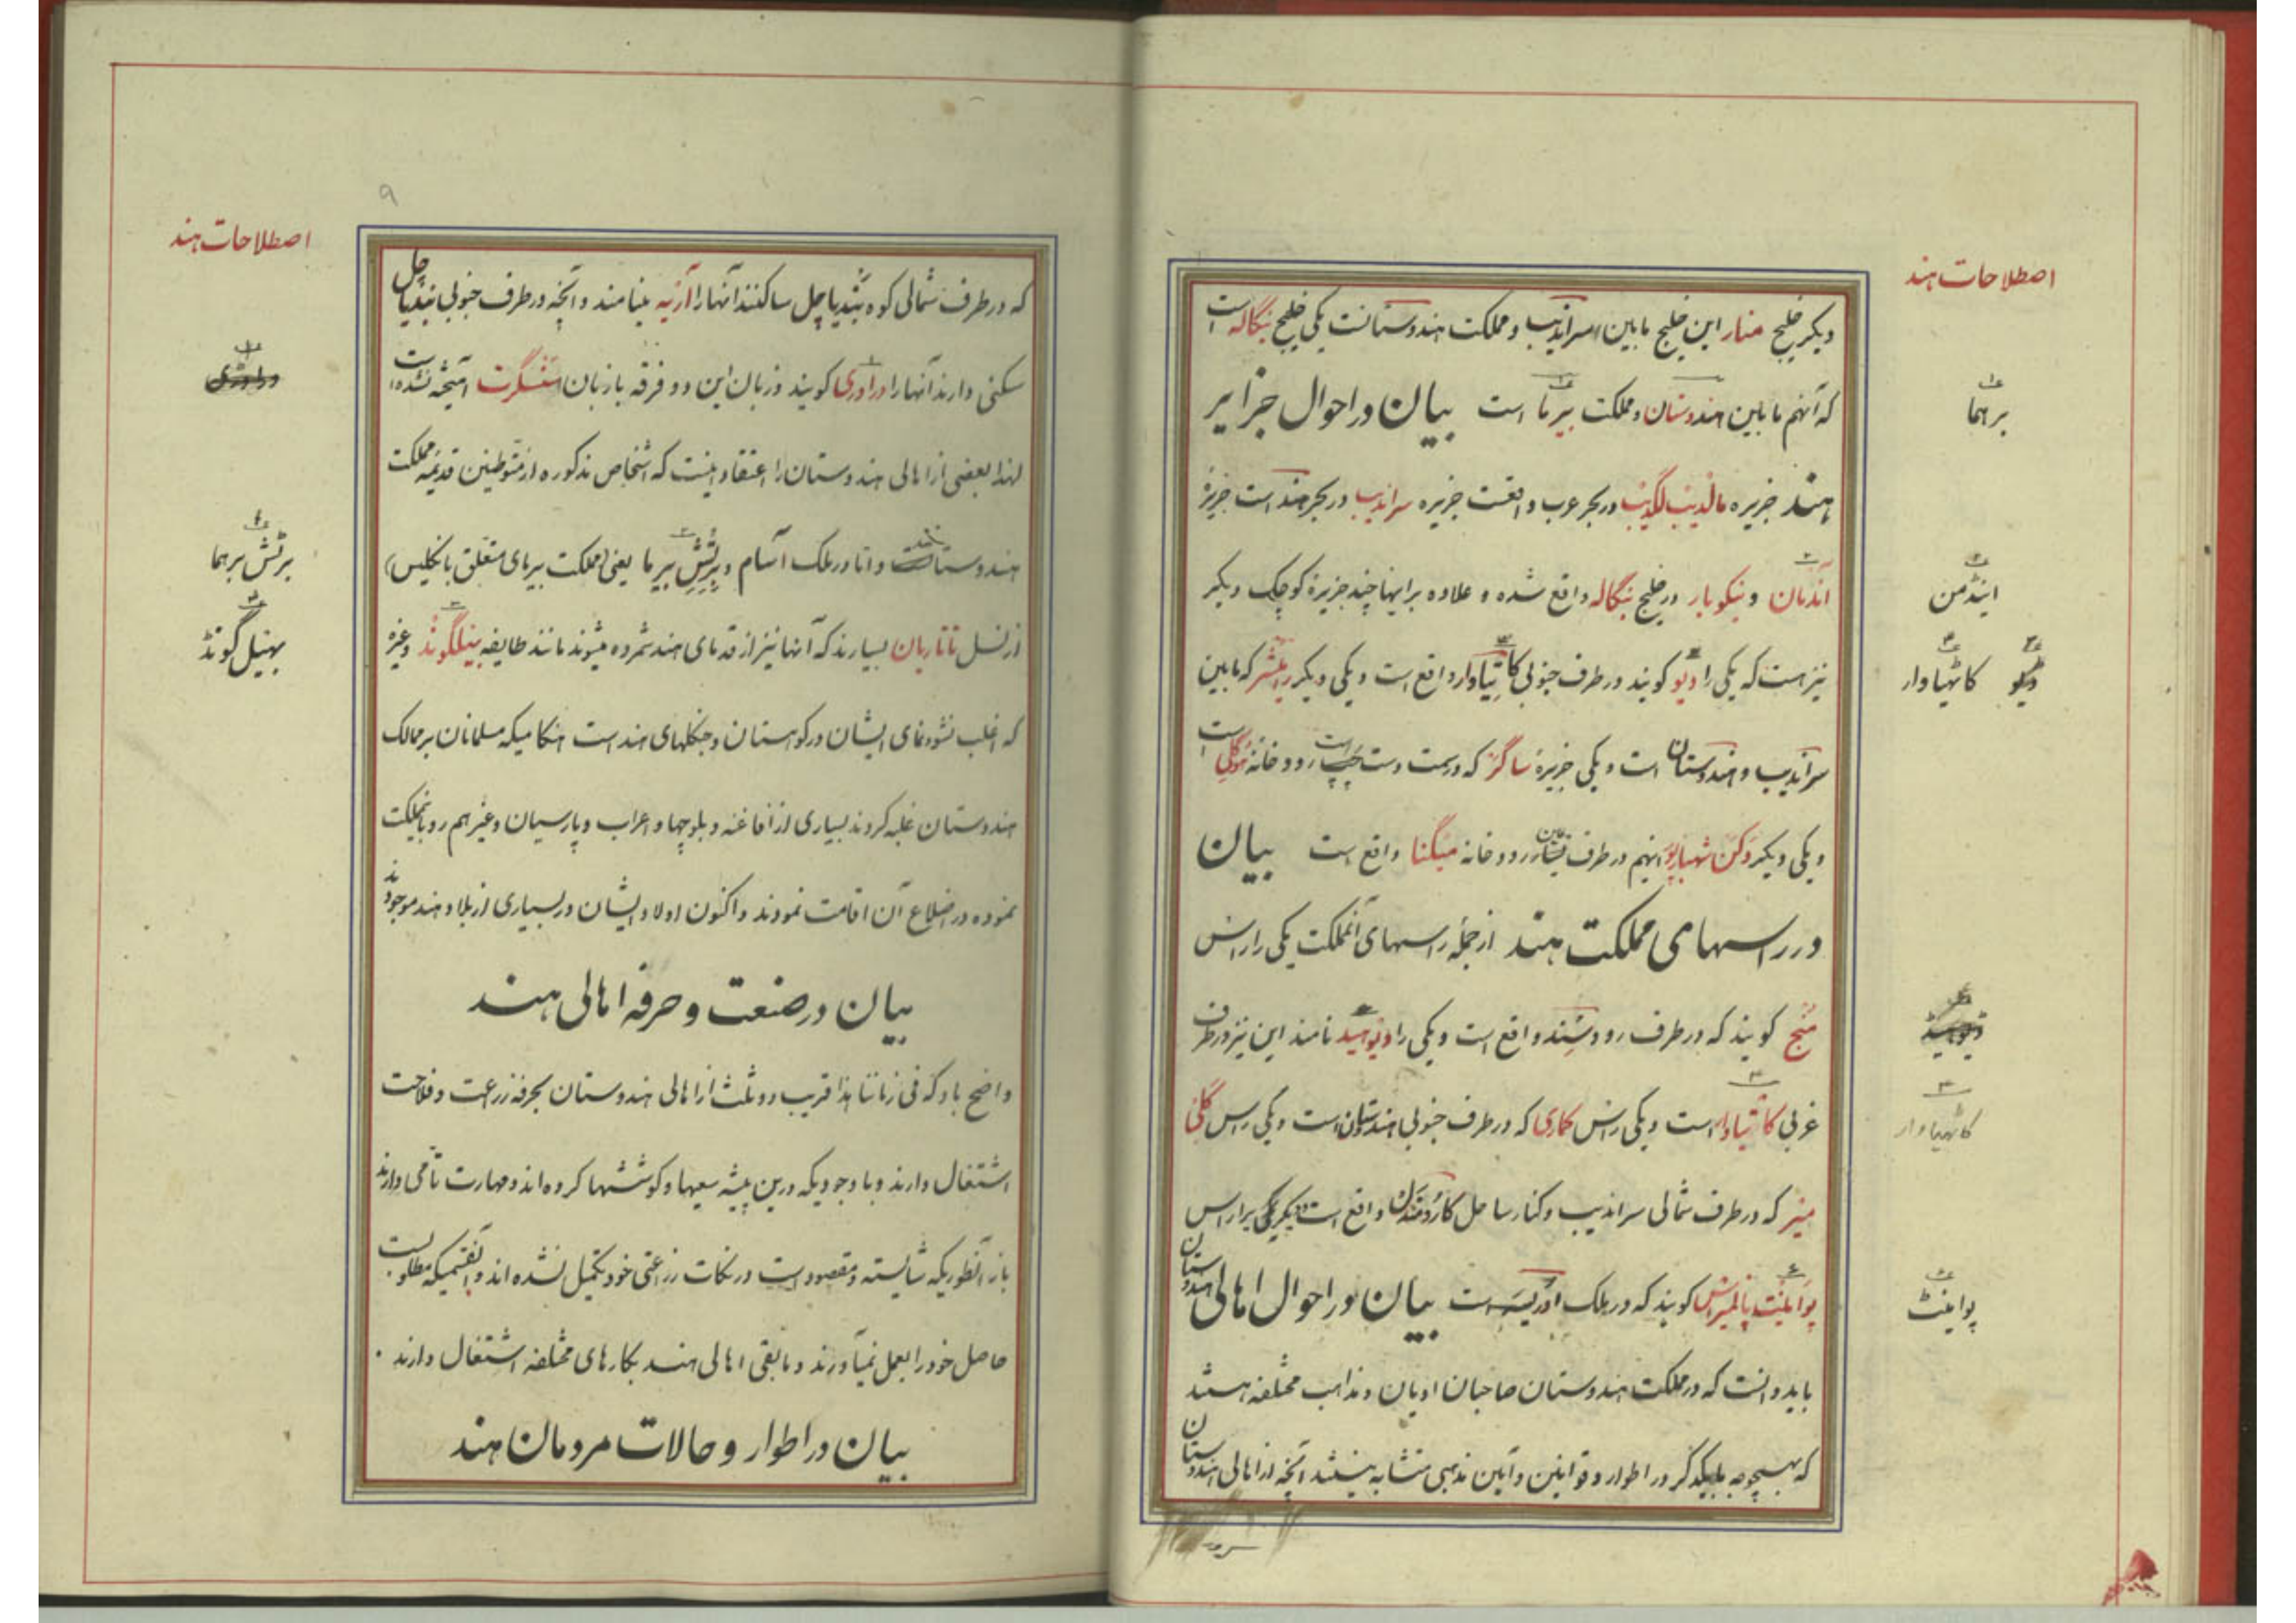 اصطلاحات هند
دیگر خلیج منار این خلیج مابین سراندیب و مملکت هندوستانست یکی خلیج بنگاله است
که آنهم مابین هندوستان و مملکت بیرما است بیان در احوال جزایر
برهما
هند جزیره مالدیب لگدیب در بحر عرب واقعست جزیره سراندیب در بحر هند است جزیرهٔ
اندمان و نیکوبار در خلیج بنگاله واقع شده و علاوه بر اینها چند جزیرهٔ کوچک دیگر
اینڈمن
نیز هست که یکی را دیو گویند در طرف جنوبی کاتیاوار واقع است و یکی دیگر که مابین
ڈیو کاٹهیاوار
سراندیب و هندوستان است و یکی جزیرهٔ ساگر که در سمت دست چپ رودخانه هوگلی است
و یکی دیگر دکن شهبازپور اینهم در طرف رودخانه میگنا واقع است بیان
در راسهای مملکت هند از جمله راسهای آنمملکت یکی را راس
منج گویند که در طرف رود سند واقع است و یکی را دیوهید نامند این نیز در طرف
غربی کاتیاوار است و یکی راس کماری که در طرف جنوبی هندوستان است و یکی راس
کاٹهیاوار
که در طرف شمالی سراندیب و کنار ساحل واقع است دیگر یکی را راس
پواینت پالمیراس گویند که در ملک اوریسه است بیان در احوال اهالی هندوستان
پواینٹ
باید دانست که در مملکت هندوستان صاحبان ادیان و مذاهب مختلفه هستند
که بهیچوجه بایکدگر در اطوار و قوانین و آیین مذهبی متشابه نیستند آنچه از اهالی هندوستان
۹
اصطلاحات هند
که در طرف شمالی کوه بندیاچل ساکنند آنها را آریه مینامند و آنچه در طرف جنوبی بندیاچل
سکنی دارند آنها را دراوری گویند و زبان این دو فرقه با زبان سنسگرت آمیخته نشده است
دراوڑی
لهذا بعضی از اهالی هندوستان را اعتقاد اینست که اشخاص مذکوره از متوطنین قدیمه مملکت
هندوستان و اما در ملک آسام و برتش بیرما یعنی (مملکت بیرمای متعلق بانگلیس)
برٹش برهما
از نسل تاتاریان بسیارند که آنها نیز از قدمای هند شمرده میشوند مانند طایفه بیلگوند و غیره
بهیل گونڈ
که اغلب نشوونمای ایشان در کوهستان و جنگلهای هند است هنگامیکه مسلمانان بر ممالک
هندوستان غلبه کردند بسیاری از افاغنه و بلوچها و اعراب و پارسیان و غیرهم رو بآنمملکت
نموده در اضلاع آن اقامت نمودند و اکنون اولاد ایشان در بسیاری از بلاد هند موجودند
بیان در صنعت و حرفه اهالی هند
واضح باد که فی زماننا هذا قریب دو ثلث از اهالی هندوستان بحرفه زراعت و فلاحت
اشتغال دارند و با وجودیکه درین پیشه سعیها و کوششها کرده اند و مهارت تامی دارند
باز آنطوریکه شایسته و مقصود است در نکات زراعتی خود تکمیل نشده اند و آنقسمیکه مطلوبست
حاصل خود را بعمل نمیآورند و مابقی اهالی هند بکارهای مختلفه اشتغال دارند
بیان در اطوار و حالات مردمان هند